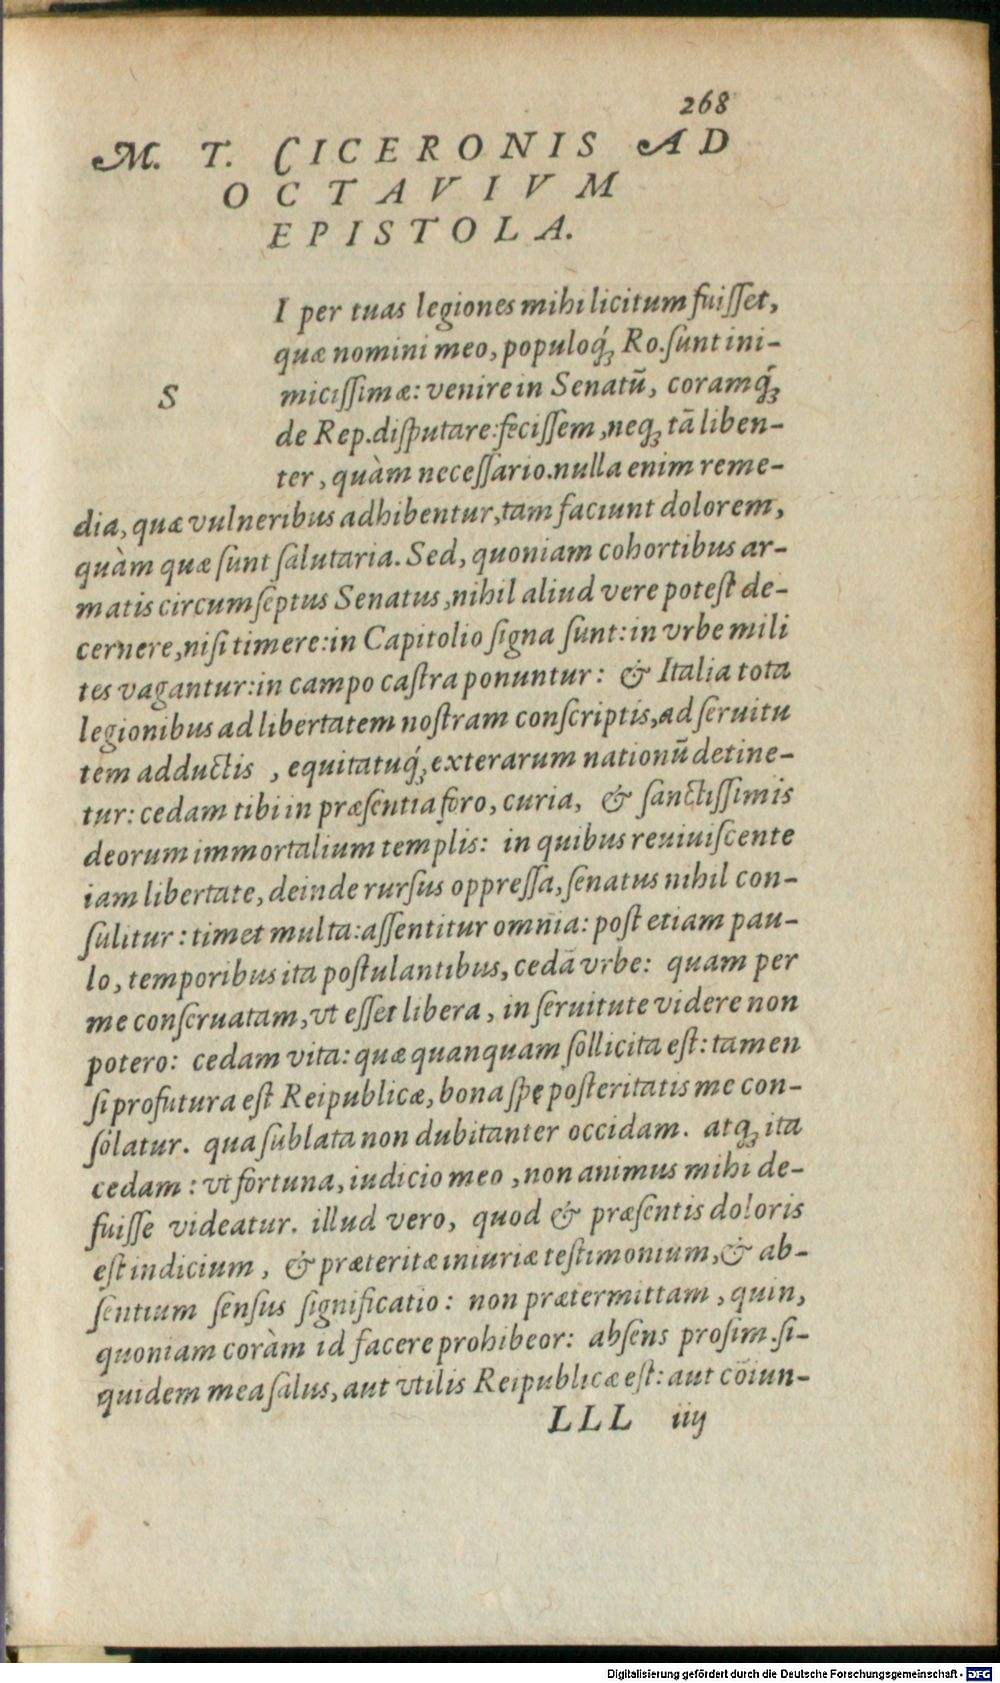 268
M. T. CICERONIS AD
OCTAVIVM
EPISTOLA.
SI per tuas legiones mihi licitum fuiſſet,
quæ nomini meo, populoq́ꝫ Ro. ſunt ini-
miciſſimæ: venire in Senatū, coramq́ꝫ
de Rep. diſputare: feciſſem, neqꝫ tā liben-
ter, quàm neceſſario. nulla enim reme-
dia, quæ vulneribus adhibentur, tam faciunt dolorem,
quàm quæ ſunt ſalutaria. Sed, quoniam cohortibus ar-
matis circumſeptus Senatus, nihil aliud vere poteſt de-
cernere, niſi timere: in Capitolio ſigna ſunt: in vrbe mili
tes vagantur: in campo caſtra ponuntur: & Italia tota
legionibus ad libertatem noſtram conſcriptis, ad ſeruitu
tem adductis , equitatuq́ꝫ exterarum nationū detine-
tur: cedam tibi in præſentia foro, curia, & ſanctiſſimis
deorum immortalium templis: in quibus reuiuiſcente
iam libertate, deinde rurſus oppreſſa, ſenatus nihil con-
ſulitur: timet multa: aſſentitur omnia: poſt etiam pau-
lo, temporibus ita poſtulantibus, cedā vrbe: quam per
me conſeruatam, vt eſſet libera, in ſeruitute videre non
potero: cedam vita: quæ quanquam ſollicita eſt: tamen
ſi profutura eſt Reipublicæ, bona ſpe poſteritatis me con-
ſolatur. qua ſublata non dubitanter occidam. atqꝫ ita
cedam: vt fortuna, iudicio meo, non animus mihi de-
fuiſſe videatur. illud vero, quod & præſentis doloris
eſt indicium, & præteritæ iniuriæ teſtimonium, & ab-
ſentium ſenſus ſignificatio: non prætermittam, quin,
quoniam coràm id facere prohibeor: abſens proſim. ſi-
quidem mea ſalus, aut vtilis Reipublicæ eſt: aut cōiun-
LLL iiij
Digitalisierung gefördert durch die Deutsche Forschungsgemeinschaft - DFG